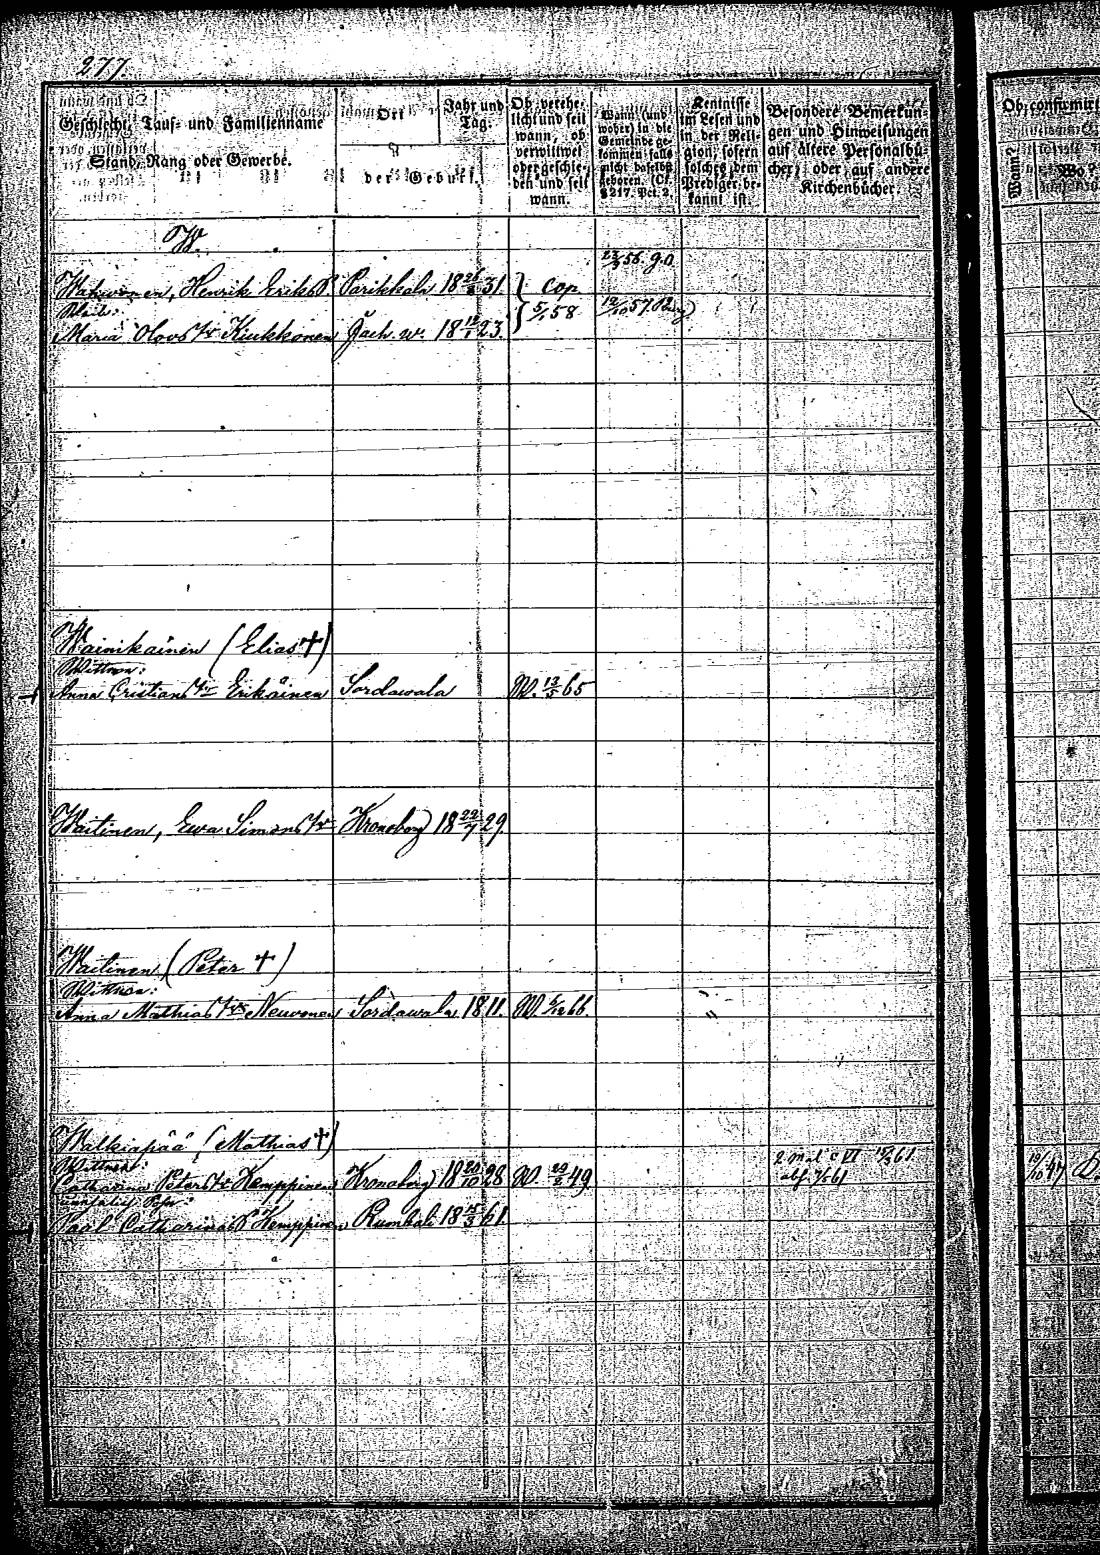 277.
Geschlecht, Tauf- und Familienname
Stand, Rang oder Gewerbe.
Ort
Jahr und Tag:
der Geburt.
Ob verehe-
licht und seit
wann, ob
verwittwet
oder geschie-
den und seit
wann.
Wann (und
woher) in die
Gemeinde ge-
kommen, falls
nicht daselbst
geboren. (Cf.
§ 217. Pct. 2.
Kentnisse
im Lesen und
in der Reli-
gion, sofern
solches dem
Prediger be-
kannt ist.
Besondere Bemerkun-
gen und Hinweisungen
auf ältere Personalbü-
cher, oder auf andere
Kirchenbücher.
Ob confirmirt
Wann?
Wo?
W.
Henrik Eriks S. Parikkala 18 26/8 31. cop. 5/1 58
Maria Olovs tr Kiukkonen Jäch. w. 18 23.
Wainikainen (Elias †)
Wittwe:
Anna Cristians tr Erikäinen Sordawala W. 13/5 65
Waitinen, Ewa Simons tr Kronoborg 18 22/7 29.
Waitinen (Peter †)
Wittwe:
Anna Mathias tr Neuvonen Sordawala 1811. W. 6/12 66.
Walkiapää (Mathias †)
Wittwe:
Catharina Peters tr Kemppinen Kronoborg 18 20/10 28 W. 49
Catharinas S. Kemppinen Rumbali 18 15/3 61.